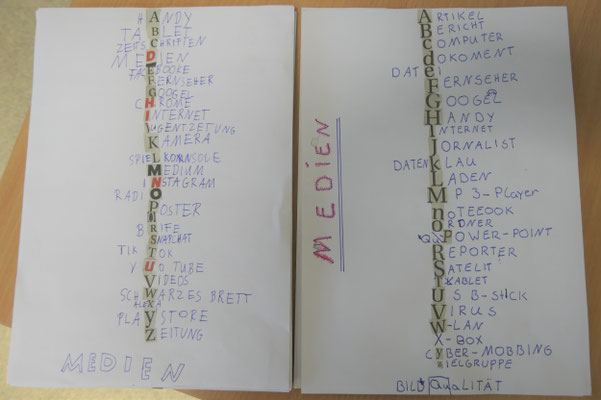 HANDY
TABLET
ZEITSCHRIFTEN
MEDIEN
FACEBOOKE
FERNSEHER
GOOGEL
CHROME
INTERNET
JUGENTZEITUNG
KAMERA
SPIELKONNSOLE
MEDIUM
INSTAGRAM
RADIO
POSTER
BRIFE
SNAPCHAT
TIK TOK
YOUTUBE
VIDEOS
SCHWARZES BRETT
ALEXA
PLAYSTORE
ZEITUNG
MEDIEN
MEDIEN
ARTIKEL
BERICHT
COMPUTER
DOKOMENT
DATEI
FERNSEHER
GOOGEL
HANDY
INTERNET
JORNALIST
DATENKLAU
LADEN
MP3-PLayer
noTEBOOK
oRDNER
POWER-POINT
REPORTER
SATELIT
tABLET
USB-STICK
VIRUS
W-LAN
X-BOX
CyBER-MOBBING
zIELGRUPPE
BILDQuaLITÄT